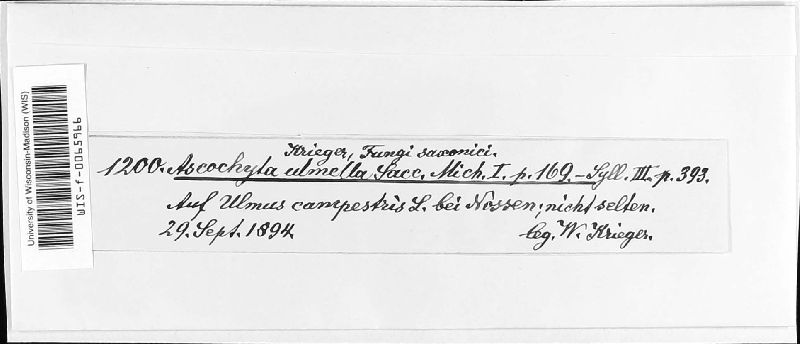 University of Wisconsin-Madison (WIS)
WIS-f-0065966
Krieger, Fungi saxonici.
1200. Ascochyta ulmella Sacc. Mich. I. p. 169. - Syll. III. p. 393.
Auf Ulmus campestris L. bei Nossen; nicht selten.
29. Sept. 1894.
leg. W. Krieger.